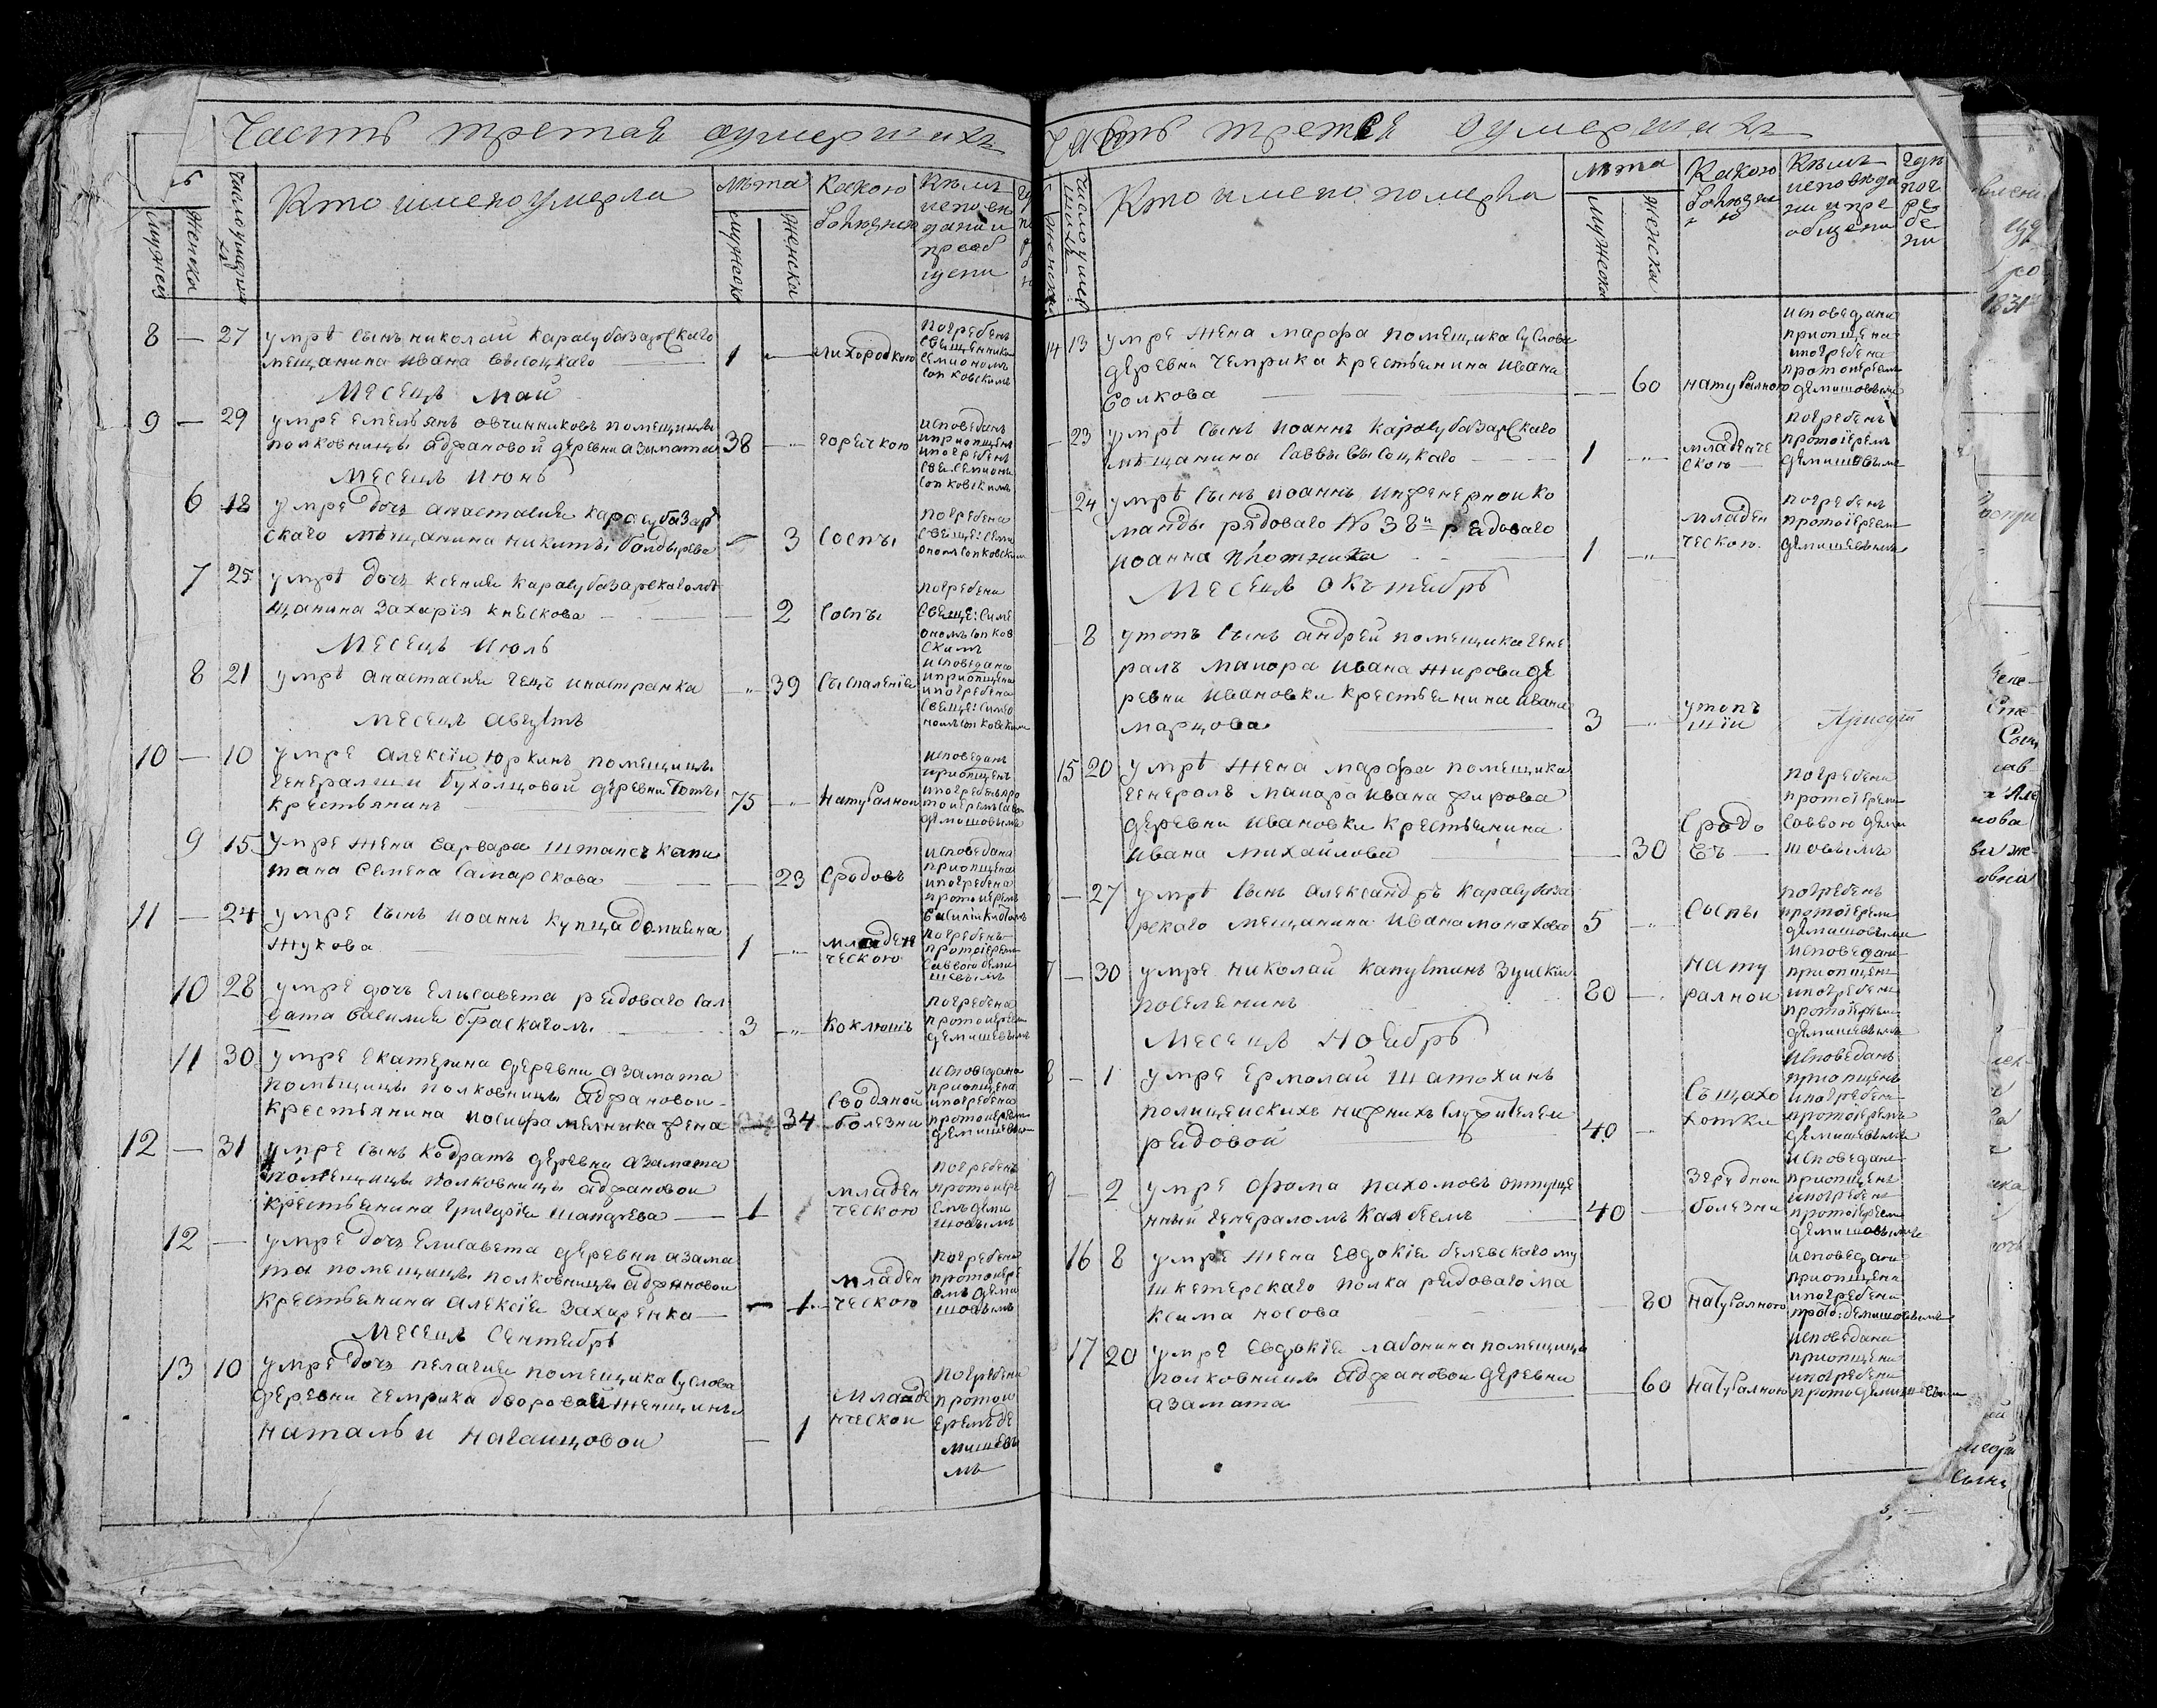 Часть третая оумершихъ
число умершихъ
мужеск
женска
Кто имено умерла
лѣта
мужеско
женска
Какою болѣзнею
Кѣмъ исповеданы и преобщены
8 — 27 умрѣ сынъ николай карасубазарскаго
мещанина ивана высоцкаго — 1 — лихородкою
погребенъ священникомъ семиономъ сопковскимъ
Месецъ май
9 — 29 умре емельянъ овчинниковъ помещицы
полковницы адрановой деревни азамата 38 — горячкою
исповеданъ и приопщенъ и погребенъ свя. семионом сопковскимъ
Месецъ июнь
6 18 умре дочь анастасия карасубазар
скаго мѣщанина никиты болдырева — 3 соспы
погребена свяще: семиономъ сопковским
7 25 умрѣ дочь ксения карасубазарскаго мѣ
щанина захария княскова — 2 соспы
погребена свяще: симеономъ сопковскимъ
Месецъ июль
8 21 умрѣ анастасия гецъ инастранка — 39 съспаления
исповедана и приопщена и погребена свяще: симеономъ сопковским
Месецъ августъ
10 — 10 умре алексий юркинъ помещицы
генералши бухолцовой деревни боты
крестьянинъ 75 — натуралной
исповеданъ приопщенъ и погребенъ протоиереемъ савою демишовымъ
9 15 умре жена варвара штапсъ капи
тана семена самарскова — 23 сродовъ
исповедана приопщена и погребена протоиереемъ
11 — 24 умре сынъ иоаннъ купца домиана
жукова 1 — младенческою
погребенъ протоиереем саввою демишевымъ
10 28 умре дочъ елисавета рядоваго сал
дата василия браскаголь. 3 — коклюшъ
погребена протоиерем демишевымъ
11 30 умре екатерина деревни азамата
помѣщицы полковницы адрановой
крестьянина иосифа мелника жена 34 сводяной болезни
исповедана приопщена и погребена протоиерем демишевым
12 — 31 умре сынъ кодратъ деревни азамата
помещицы полковницы адрановой
крестьянина григория шапарева — 1 младенческою
погребенъ протоиереемъ демишовымъ
12 — умре дочь елисавета деревни азама
та помещицы полковницы адрановой
крестьянина алексия захаренка — 1 младенческою
погребена протоиереемъ демишовымъ
Месецъ сентябрь
13 10 умре дочь пелагия помещика суслова
деревни чемрика дворовой женщины
натальи нагаицовой — 1 младенческой
погребена протоиеремъ демишевымъ
Часть третья оумершихъ
число умершихъ
женска
Кто имено померла
лѣта
мужеска
женска
Какою болѣзнию
Кѣмъ исповеданы и преобщены
гдѣ погребены
14 13 умре жена марфа помещика суслова
деревни чемрика крестьянина ивана
волкова — 60 натуралною
исповедана приопщена и погребена протоиереем демишовым
— 23 умрѣ сынъ иоаннъ карасубазарскаго
мѣщанина саввы высоцкаго — 1 — младенческою
погребенъ протоиерем демишовымъ
24 умрѣ сынъ иоаннъ инженерной ко
манды рядоваго № 38й рядоваго
иоанна плотника 1 — младенческою
погребенъ протоиереем демишевымъ
Месецъ окътябрь
— 8 утопъ сынъ андрей помещика гене
ралъ маиора ивана жирова де
ревни ивановки крестьянина ивана
марцова 3 — утопшии
15 20 умрѣ жена марфа помещика
генералъ маиора ивана жирова
деревни ивановки крестьянина
ивана михайлова — 30 сродовъ
погребена протоиереем саввою демишовымъ
— 27 умрѣ сынъ александръ карасубаза
рскаго мещанина ивана монахова 5 — соспы
погребенъ протоиереем демишовымъ
— 30 умре николай капустинъ зуиский
поселянинъ 80 — натуралной
исповеданъ приопщенъ и погребенъ протоиереем демишевымъ
Месецъ ноябрь
— 1 умре ермолай шатохинъ
полицейскихъ нижнихъ служителей
рядовой 40 — същахотки
исповеданъ приопщенъ и погребенъ протоиеремъ демишевымъ
— 2 умре фома пахомовъ отпуще
нный генераломъ каябеемъ 40 — болезни
исповеданъ приопщенъ и погребенъ протоиерем демишовымъ
16 8 умре жена евдокия белевскаго му
шкетерскаго полка рядоваго ма
ксима носова — 80 натуралною
исповедана приопщена и погребена прото: демишовымъ
17 20 умре евдокия лабонина помещицы
полковницы адрановой деревни
азамата — 60 натуралною
исповедана приопщена и погребена прото демишевым